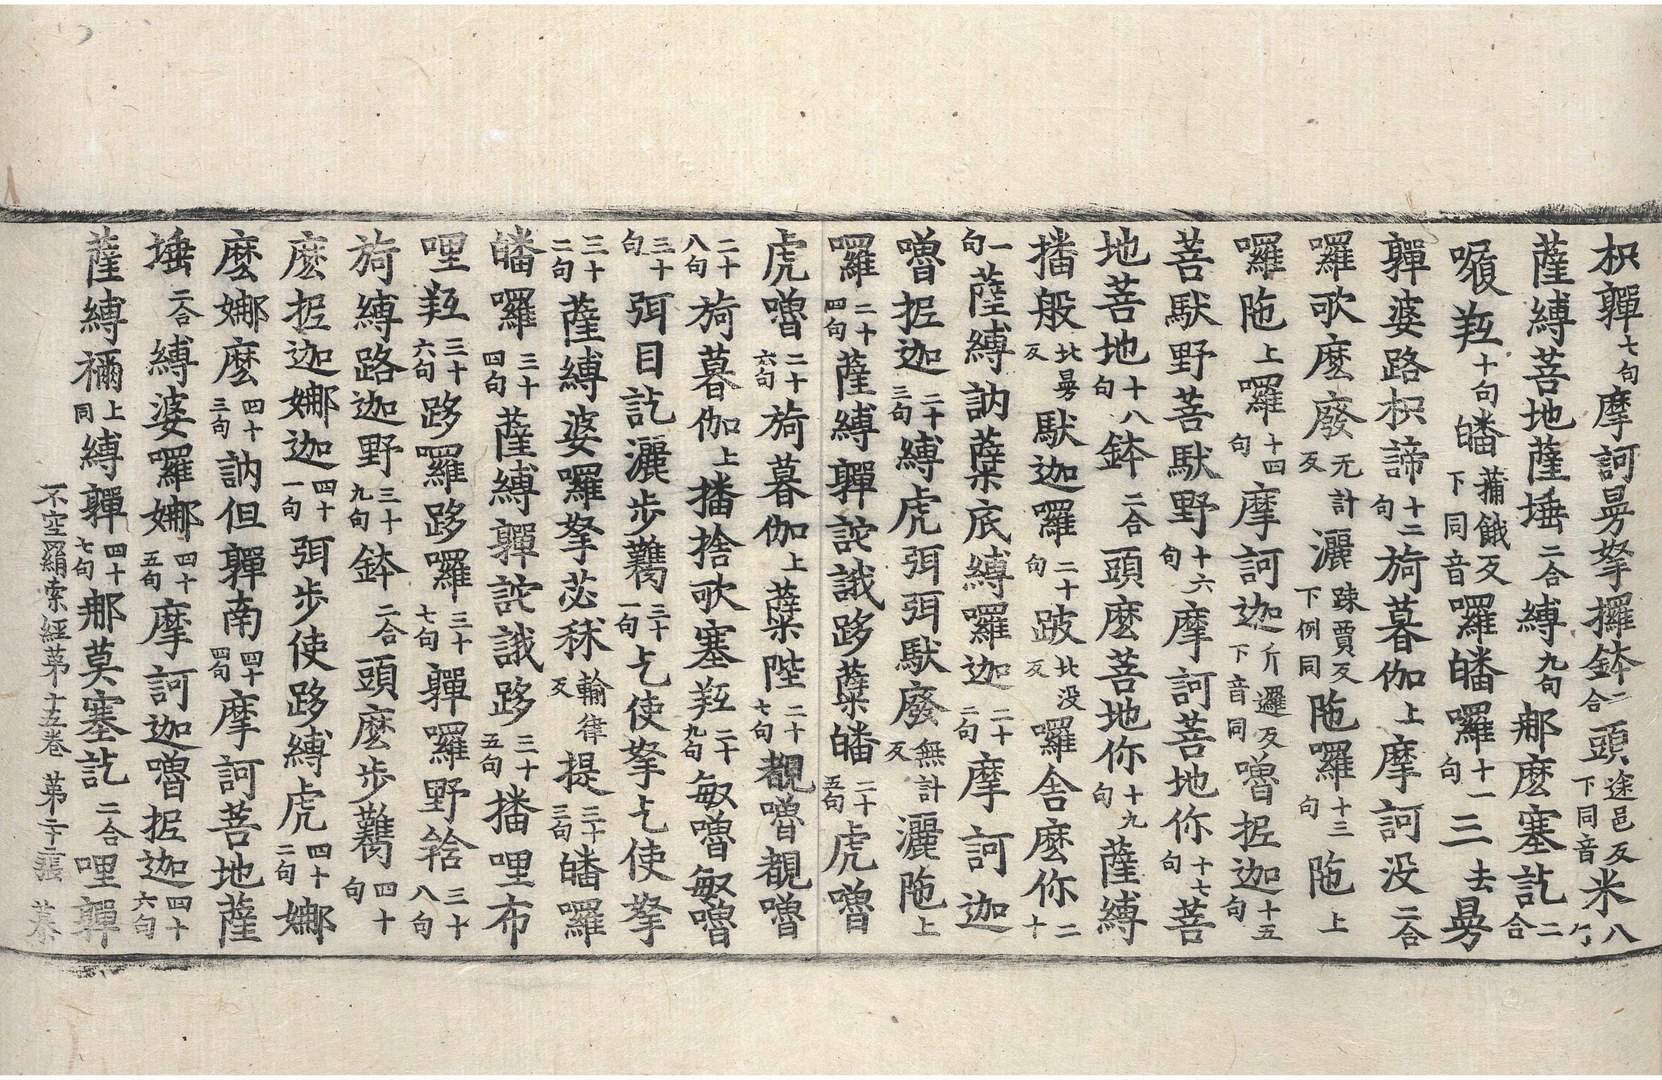 枳嚲七句摩訶㬒拏攞鉢二合頭途邑反下同音米八句
薩縛菩地薩埵二合縛九句那麼塞訖二合
㗚䋾十句皤菔餓反下同音囉皤囉十一句三去㬒
嚲婆路枳諦十二句旖暮伽上摩訶没二合
囉歌麼廢无計反灑疎賈反下例同陁囉十三句陁上
囉陁上囉十四句摩訶迦斤邏反下音同嚕抳迦十五句
菩馱野菩馱野十六句摩訶菩地你十七句菩
地菩地十八句鉢二合頭麼菩地你十九句薩縛
播般北㬒反馱迦囉二十句跛北没反囉舍麼你二十
一句薩縛訥薩底縛囉迦二十二句摩訶迦
嚕抳迦二十三句縛虎弭弭馱廢無計反灑陁上
囉二十四句薩縛嚲詑誐跢薩皤二十五句虎嚕
虎嚕二十六句旖暮伽上薩陛二十七句覩嚕覩嚕
二十八句旖暮伽上播捨歌塞䋾二十九句敏嚕敏嚕
三十句弭目訖灑步䕻三十一句乞使拏乞使拏
三十二句薩縛婆囉拏苾秫輸律反提三十三句皤囉
皤囉三十四句薩縛嚲詑誐跢三十五句播哩布
哩䋾三十六句跢囉跢囉三十七句嚲囉野䤴三十八句
旖縛路迦野三十九句鉢二合頭麼步䕻四十句
麼抳迦娜迦四十一句弭步使跢縛虎四十二句娜
麼娜麼四十三句訥但嚲南四十四句摩訶菩地薩
埵二合縛婆囉娜四十五句摩訶迦嚕抳迦四十六句
薩縛禰上同縛嚲四十七句那莫塞訖二合哩嚲
不空羂索經苐十五卷 苐二十張 慕